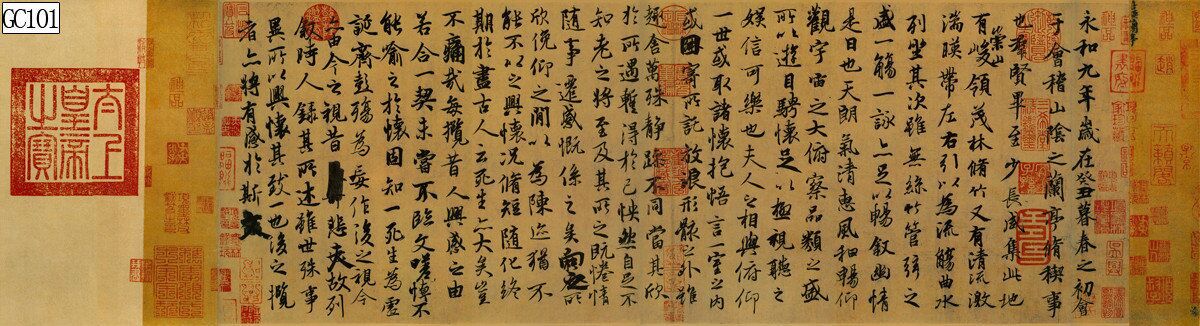 GC101
永和九年歲在癸丑暮春之初會
于會稽山陰之蘭亭脩稧事
也羣賢畢至少長咸集此地
有崇山峻領茂林脩竹又有清流激
湍暎帶左右引以為流觴曲水
列坐其次雖無絲竹管弦之
盛一觴一詠亦足以暢叙幽情
是日也天朗氣清惠風和暢仰
觀宇宙之大俯察品類之盛
所以遊目騁懷足以極視聽之
娛信可樂也夫人之相與俯仰
一世或取諸懷抱悟言一室之內
或因寄所託放浪形骸之外雖
趣舍萬殊靜躁不同當其欣
於所遇蹔得於己怏然自足不
知老之將至及其所之既惓情
隨事遷感慨係之矣向之所
欣俛仰之閒以為陳迹猶不
能不以之興懷況脩短隨化終
期於盡古人云死生亦大矣豈
不痛哉每攬昔人興感之由
若合一契未嘗不臨文嗟悼不
能喻之於懷固知一死生為虛
誕齊彭殤為妄作後之視今
亦由今之視昔悲夫故列
叙時人錄其所述雖世殊事
異所以興懷其致一也後之攬
者亦將有感於斯文
太上皇帝之寶